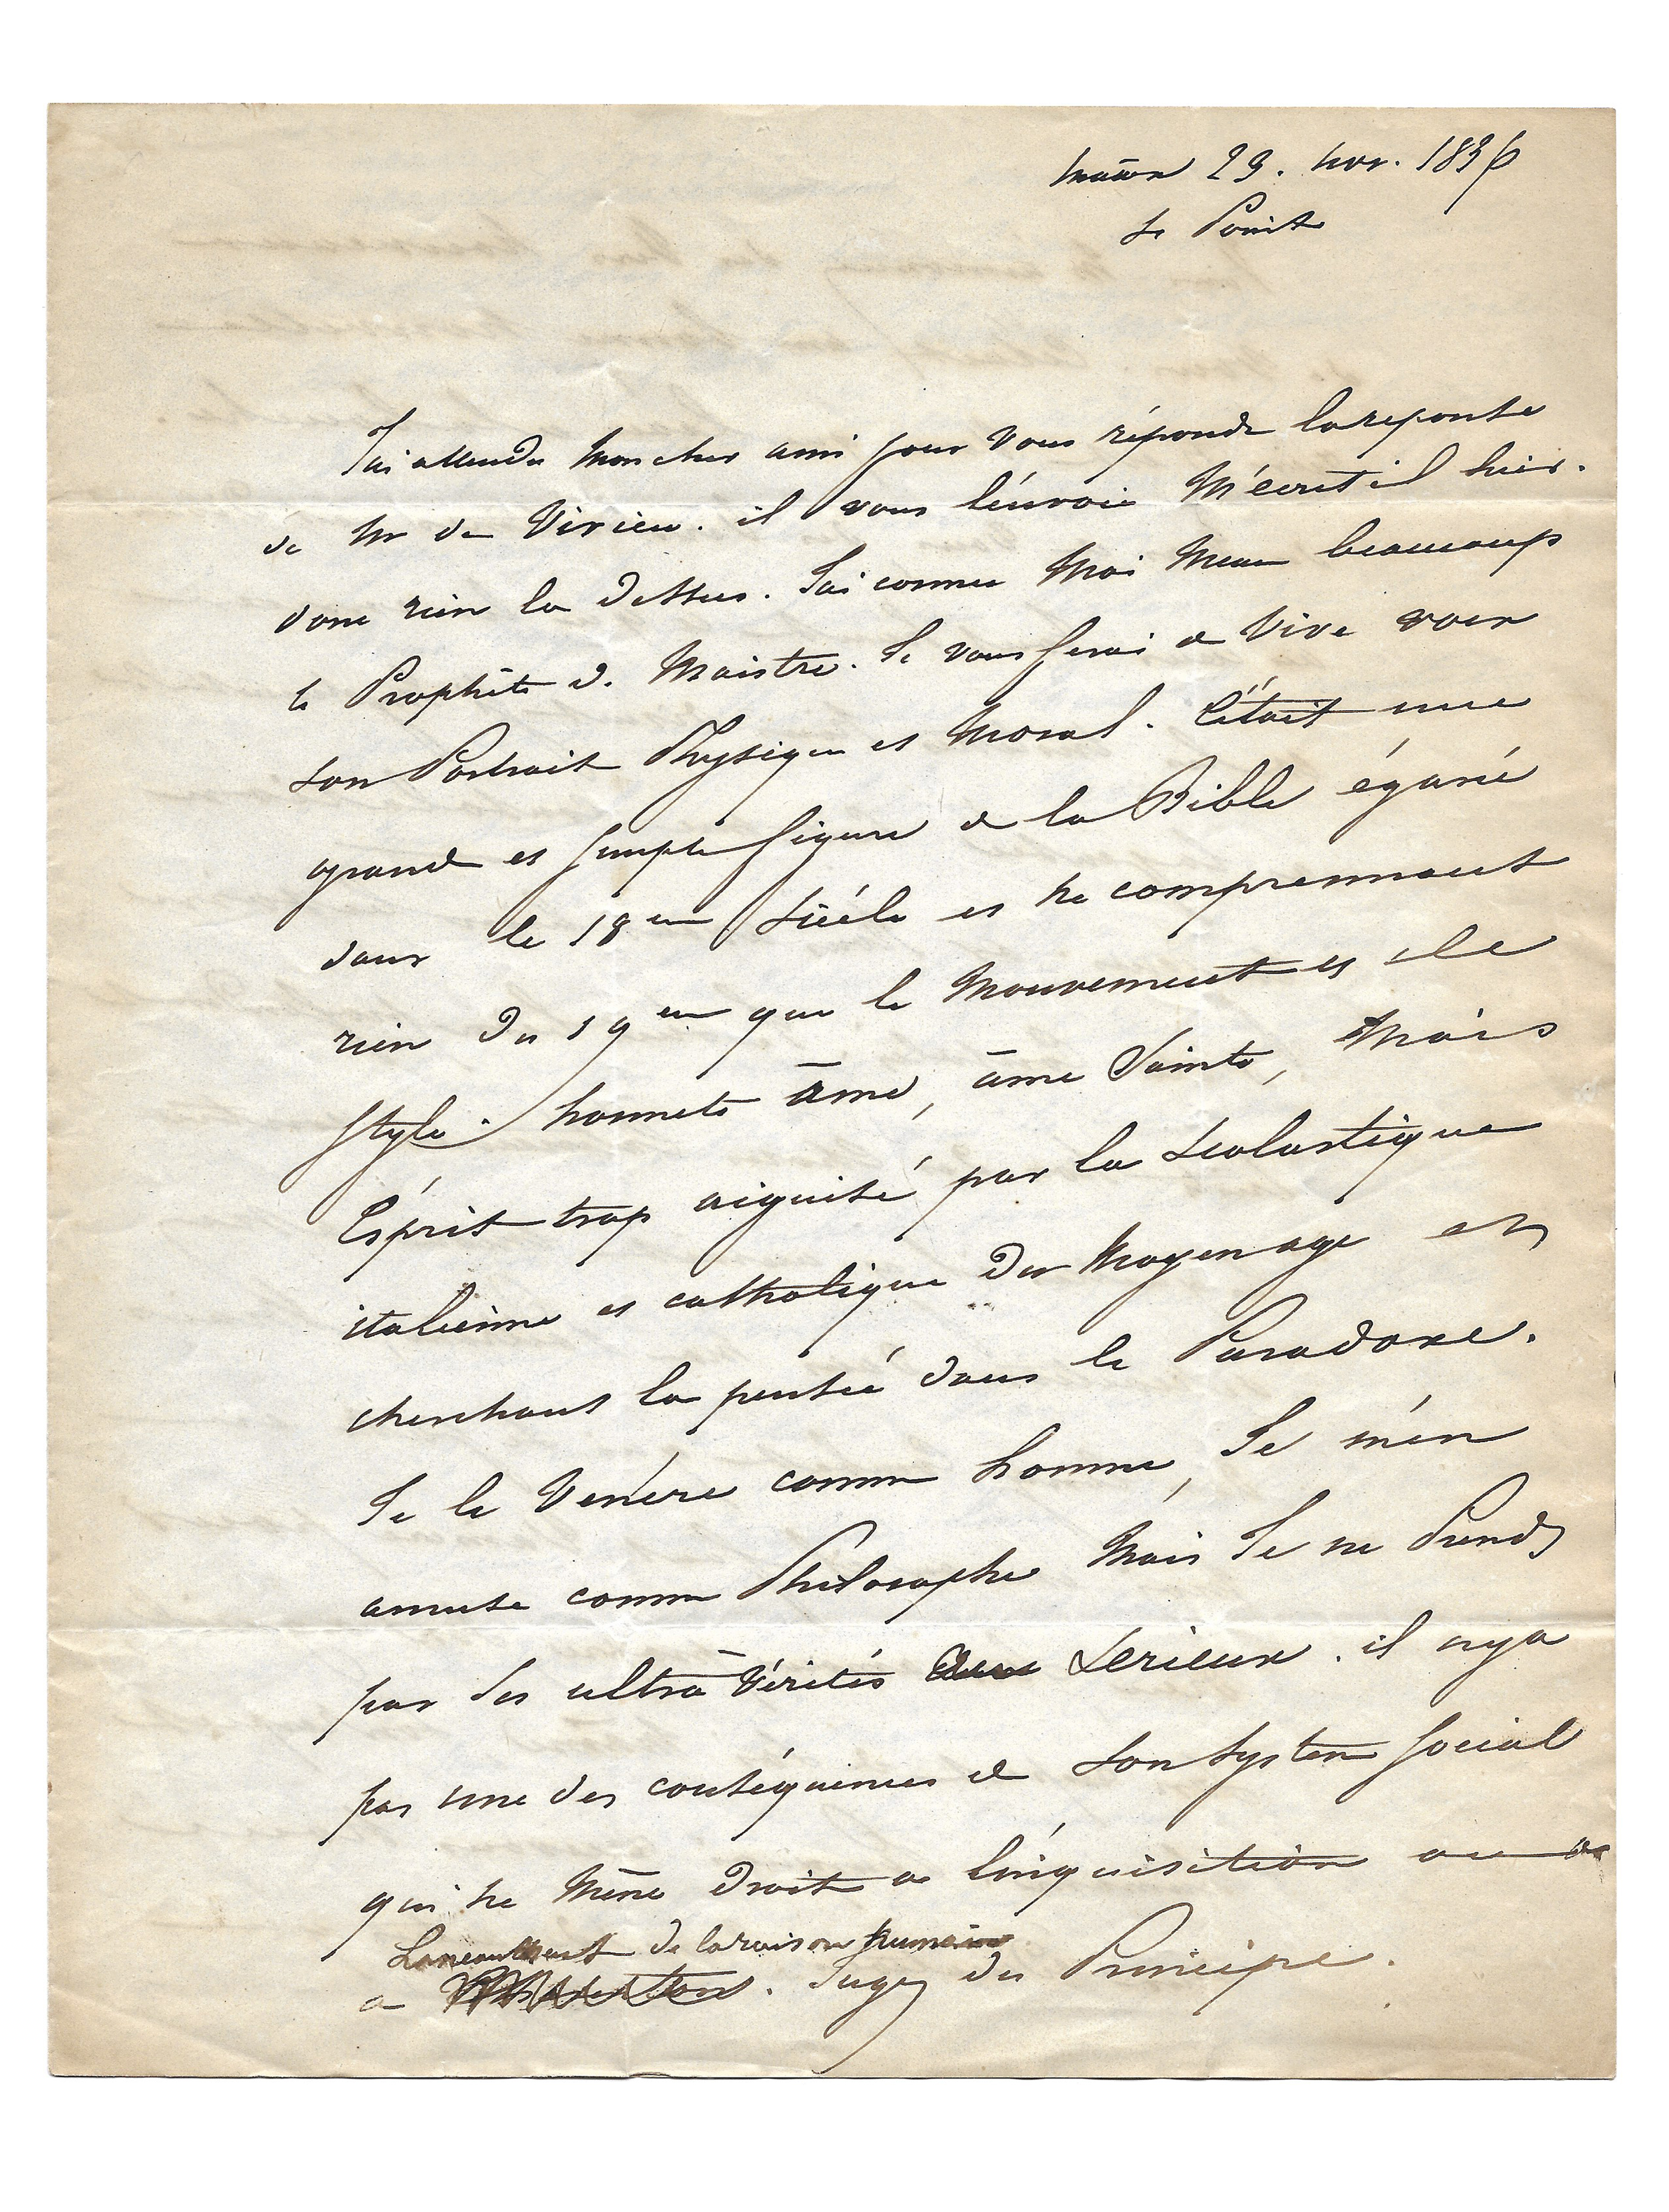 Mâcon 23. nov. 1836
St Point
J'ai attendu mon cher ami pour vous répondre la reponse
de Mr de Virieu. il vous l'envoie M'écrit il hier.
donc rien la dessus. J'ai connu Moi Meme beaucoup
le Prophête de Maistre. Je vous ferai de Vive voix
son Portrait Physique et Moral. C'était une
grande et simple figure de la Bible égarée
dans le 18eme siécle et ne comprennant
rien du 19eme que le Mouvement et le
style. honnete âme, âme Sainte, Mais
Esprit trop aiguisé par la scolastique
italienne et catholique du Moyen age et
cherchant la pensée dans le Paradoxe.
Je le Venére comme homme, Je m'en
amuse comme Philosophe Mais Je ne Prends
pas ses ultrà Vérités serieux. il n'y a
pas une des conséquences de son system social
qui ne Mène droit a l'inquisition ou
Laneantissement de la raison humaine
a . Jugez du Principe.